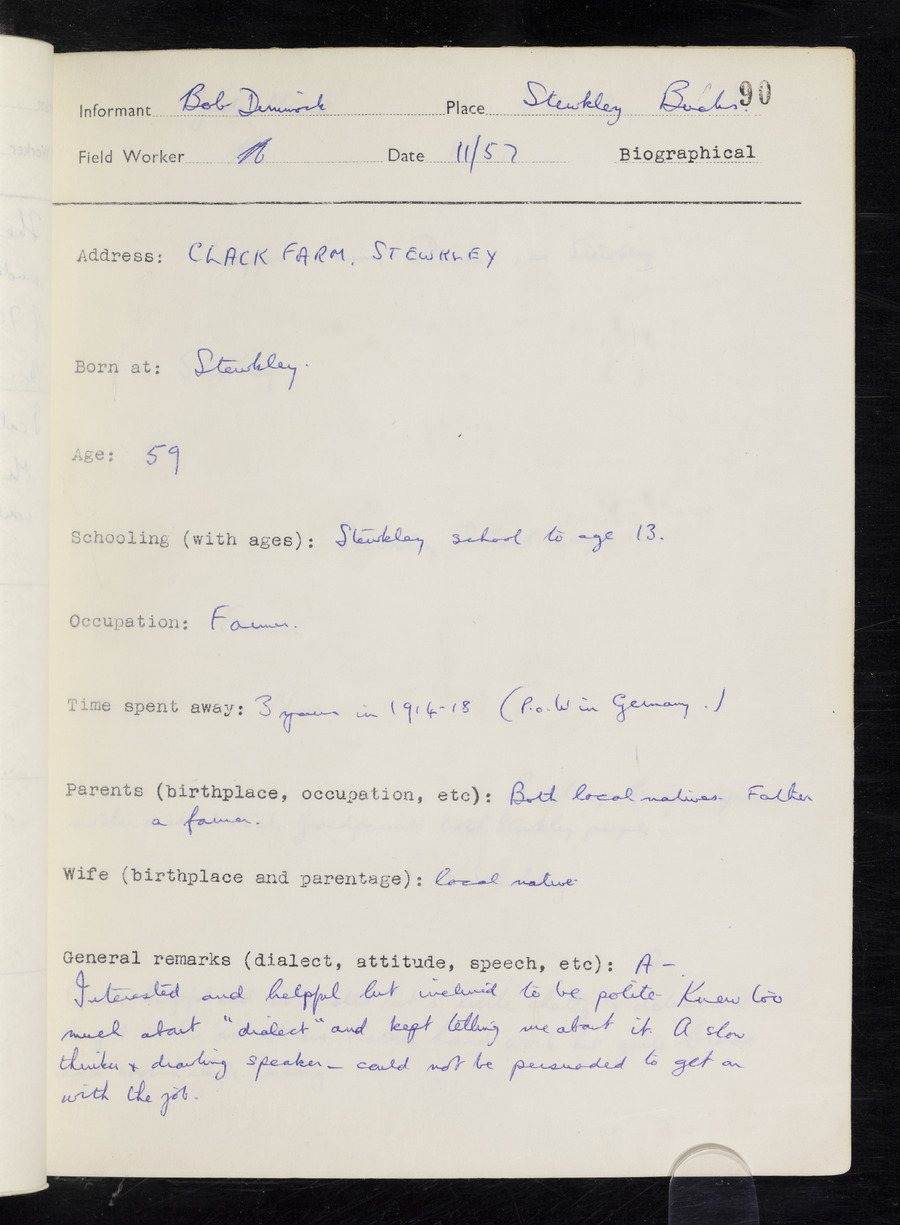 Informant Bob Dimmock Place Stewkley Bucks 90
Field Worker Date 11/57 Biographical
Address: CLACK FARM, STEWKLEY
Born at: Stewkley.
Age: 59
Schooling (with ages): Stewkley school to age 13.
Occupation: Farmer.
Time spent away: 3 years in 1914-18 (P.o.W in Germany.)
Parents (birthplace, occupation, etc): Both local natives. Father
a farmer.
Wife (birthplace and parentage): local native
General remarks (dialect, attitude, speech, etc): A -.
Interested and helpful but inclined to be polite. Knew too
much about "dialect" and kept telling me about it. A slow
thinker & drawling speaker - could not be persuaded to get on
with the job.